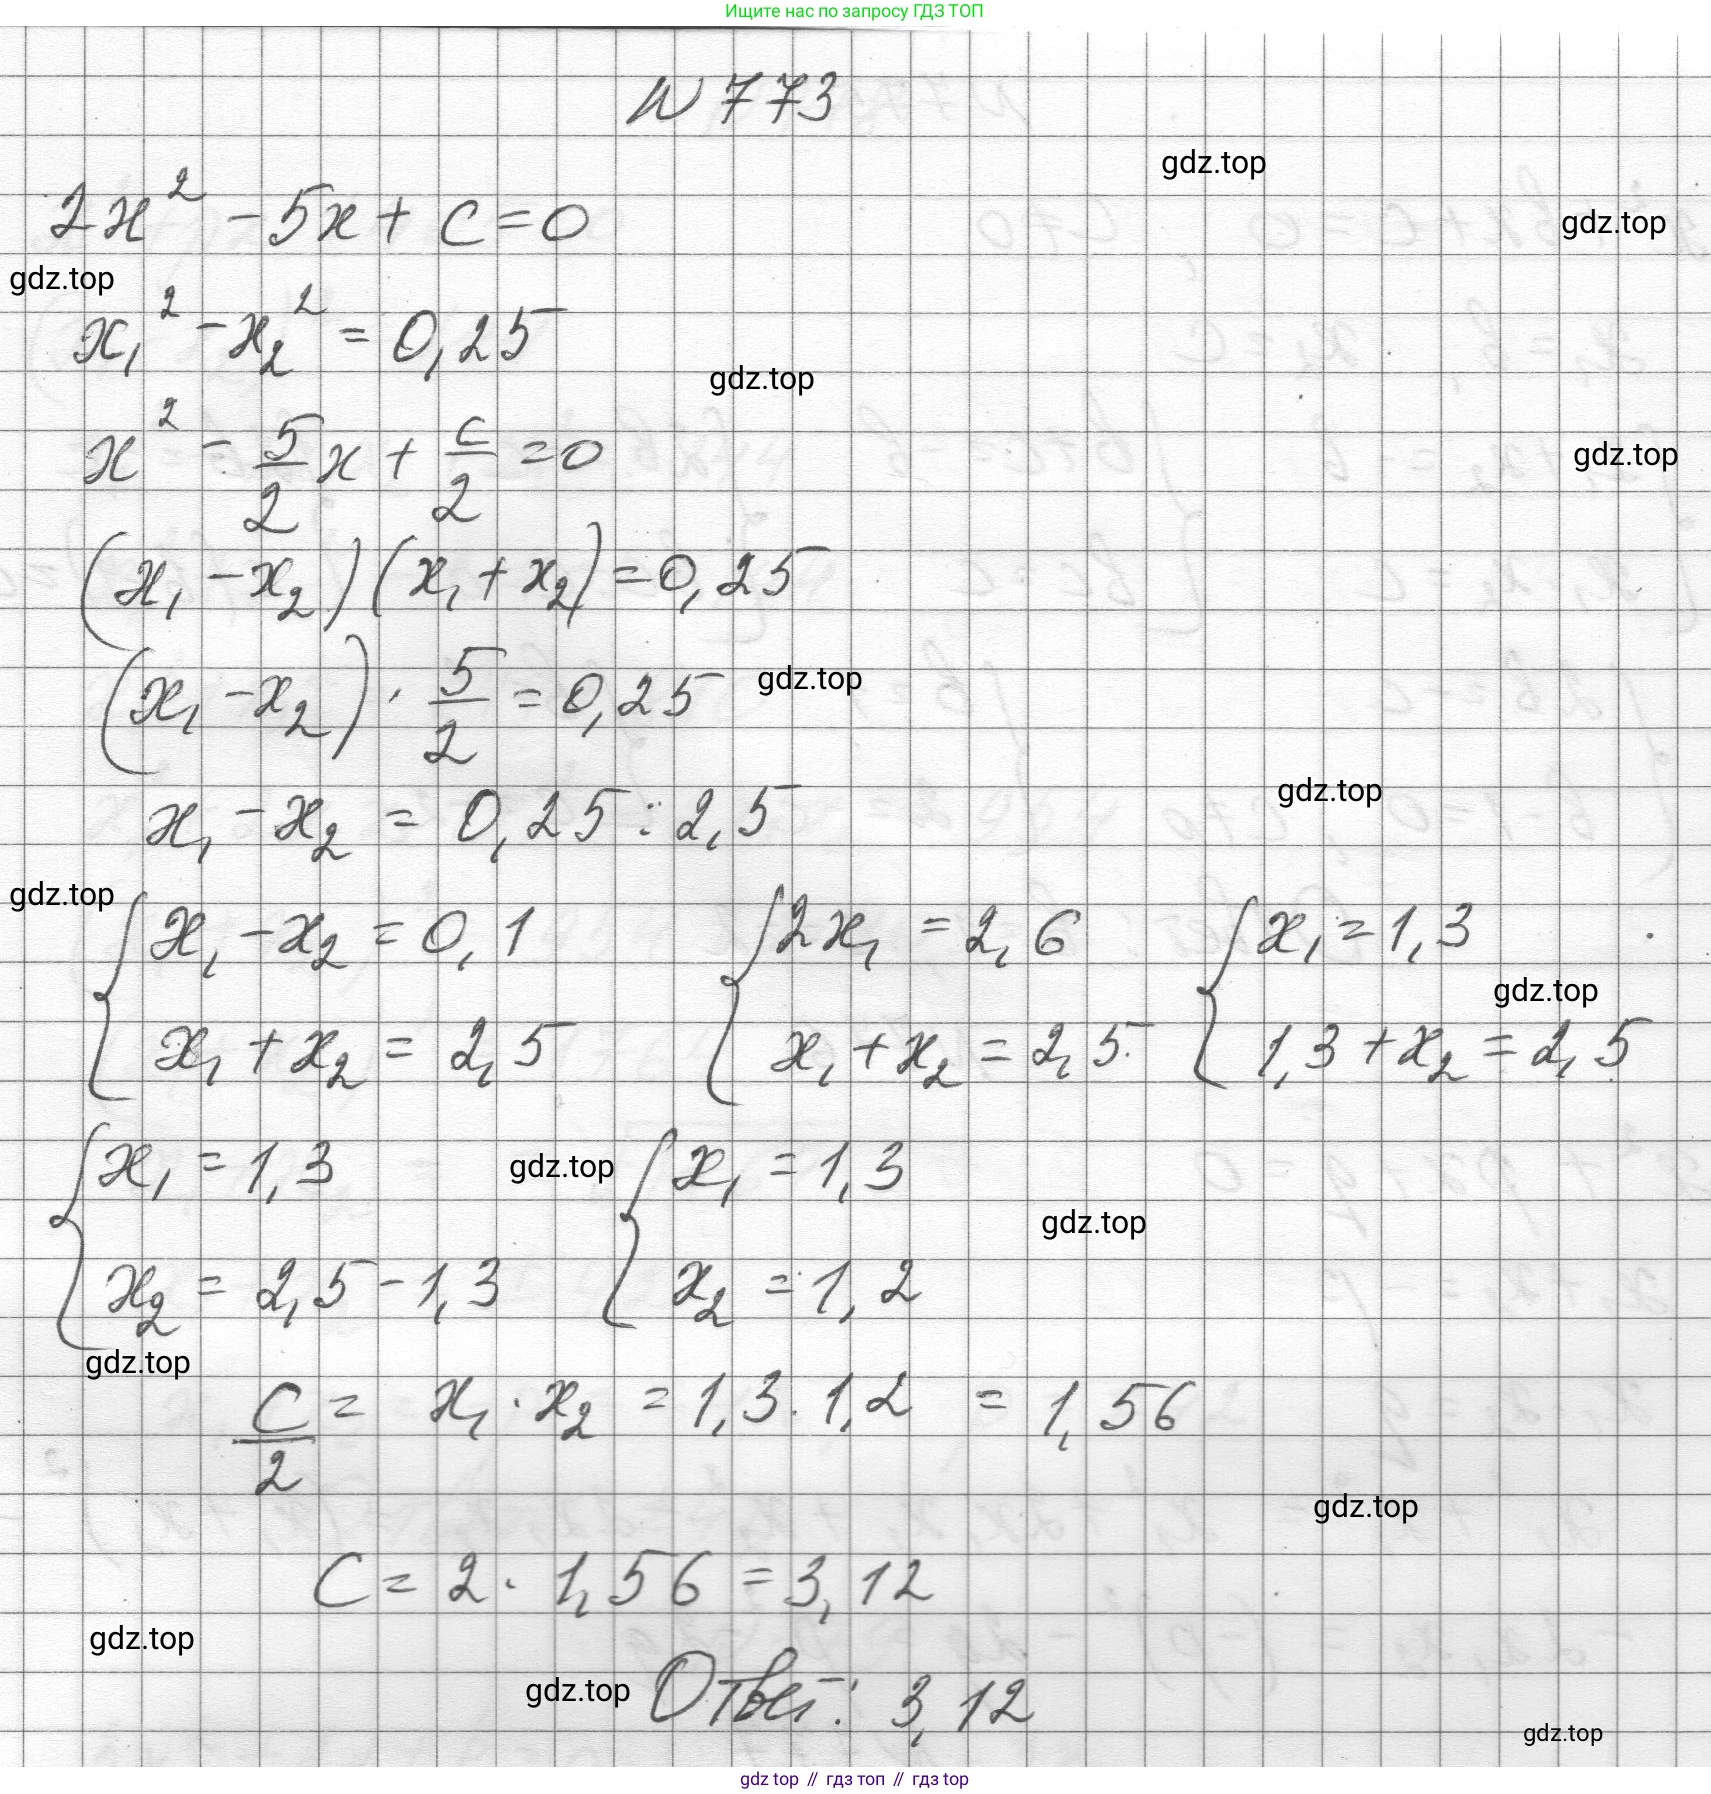 Ищите нас по запросу ГДЗ ТОП
№ 773
gdz.top
2x² - 5x + c = 0
gdz.top
gdz.top
x₁² - x₂² = 0,25
gdz.top
x² - 5/2 x + c/2 = 0
gdz.top
(x₁ - x₂)(x₁ + x₂) = 0,25
(x₁ - x₂) · 5/2 = 0,25
gdz.top
x₁ - x₂ = 0,25 : 2,5
gdz.top
gdz.top
{ x₁ - x₂ = 0,1 { 2x₁ = 2,6 { x₁ = 1,3
gdz.top
x₁ + x₂ = 2,5 x₁ + x₂ = 2,5 1,3 + x₂ = 2,5
{ x₁ = 1,3 gdz.top { x₁ = 1,3
gdz.top
x₂ = 2,5 - 1,3 x₂ = 1,2
gdz.top
c/2 = x₁ · x₂ = 1,3 · 1,2 = 1,56
gdz.top
c = 2 · 1,56 = 3,12
gdz.top
gdz.top Ответ: 3,12
gdz.top
gdz top // гдз топ // гдз top